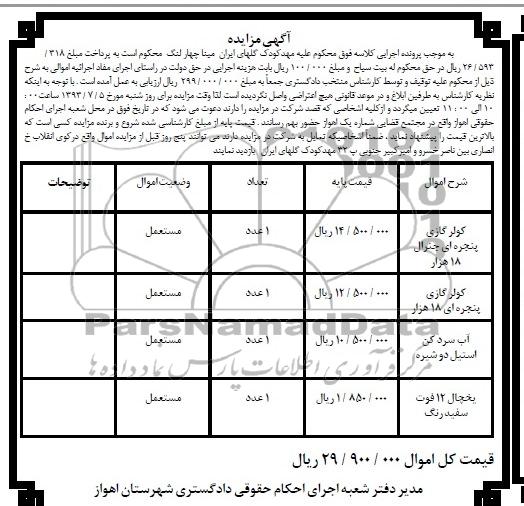 آگهی مزایده
به موجب پرونده اجرایی کلاسه فوق محکوم علیه مهدکودک گلهای ایران مینا چهار لنگ محکوم است به پرداخت مبلغ ۳۱۸ /
۲۶/ ۵۹۳ ریال در حق محکوم له بیت سیاح و مبلغ ۰۰۰/ ۱۰۰ ریال بابت هزینه اجرایی در حق دولت در راستای اجرای مفاد اجرائیه اموالی به شرح
ذیل از محکوم علیه توقیف و توسط کارشناس منتخب دادگستری جمعاً به مبلغ ۰۰۰/ ۰۰۰/ ۲۹۹ ریال ارزیابی به عمل آمده است. با توجه به اینکه
نظریه کارشناس به طرفین ابلاغ و در موعد قانونی هیچ اعتراضی واصل نکردیده است لذا وقت مزایده برای روز شنبه مورخ ۵ /۷ /۱۳۹۳ ساعت ۰۰:
۱۰ الی ۰۰: ۱۱ تعیین میگردد و از کلیه اشخاصی که قصد شرکت در مزایده را دارند دعوت می شود که در تاریخ فوق در محل شعبه اجرای احکام
حقوقی اهواز واقع در مجتمع قضایی شماره یک اهواز حضور بهم رسانند. قیمت پایه از مبلغ کارشناسی شده شروع و برنده مزایده کسی است که
بالاترین قیمت را پیشنهاد نماید. ضمناً اشخاصیکه تمایل به شرکت در مزایده دارند می توانند پنج روز قبل از مزایده اموال واقع در کوی انقلاب خ
انصاری بین ناصر خسرو و امیر کبیر جنوبی پ ۳۲ مهدکودک گلهای ایران بازدید نمایند
شرح اموال قیمت پایه تعداد وضعیت اموال توضیحات
کولر گازی
پنجره ای جنرال
۱۸ هزار
۰۰۰/ ۵۰۰/ ۱۴ ریال ۱ عدد مستعمل
کولر گازی
پنجره ای ۱۸ هزار
۰۰۰/ ۵۰۰/ ۱۲ ریال ۱ عدد مستعمل
آب سرد کن
استیل دو شیره
۰۰۰/ ۵۰۰/ ۱۰ ریال ۱ عدد مستعمل
یخچال ۱۲ فوت
سفید رنگ
۰۰۰/ ۸۵۰/ ۱ ریال ۱ عدد مستعمل
ParsNamadData
مرکز فرآوری اطلاعات پارس نماد داده ها
قیمت کل اموال ۰۰۰/ ۹۰۰/ ۲۹ ریال
مدیر دفتر شعبه اجرای احکام حقوقی دادگستری شهرستان اهواز